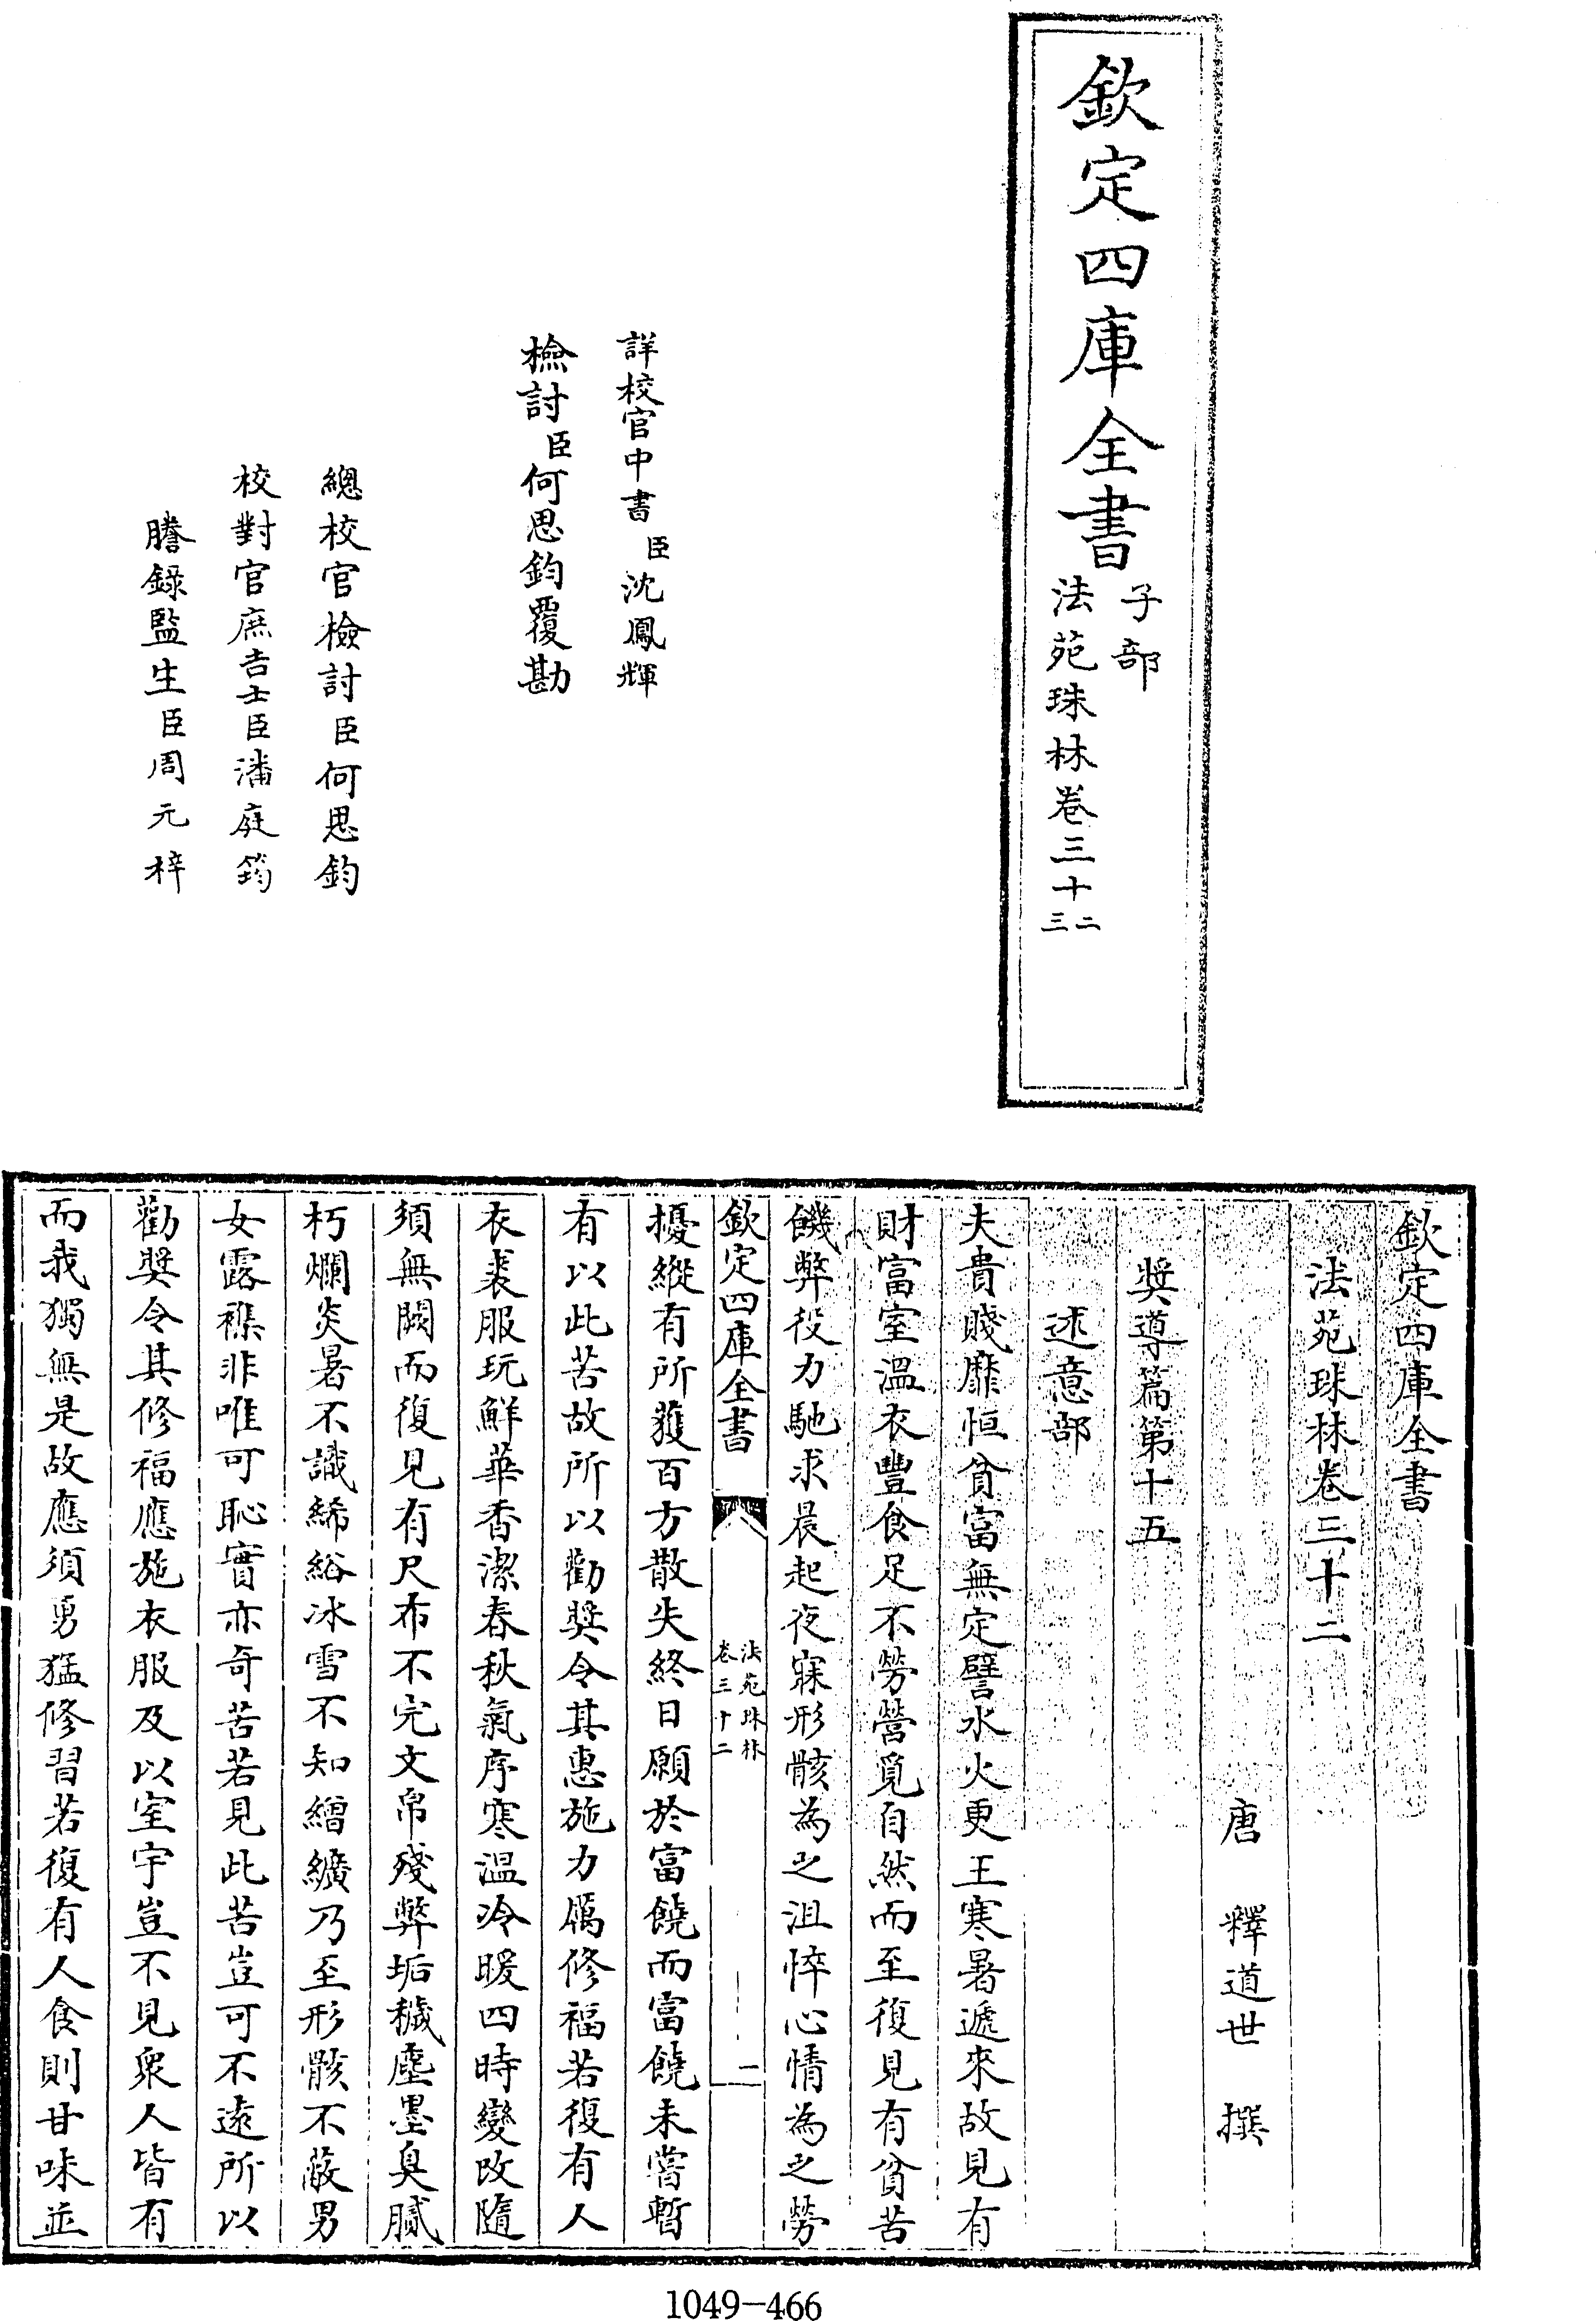 欽定四庫全書
子部
法苑珠林卷三十二
三
詳校官中書臣沈鳳輝
檢討臣何思鈞覆勘
總校官檢討臣何思鈞
校對官庶吉士臣潘庭筠
謄錄監生臣周元梓
欽定四庫全書
法苑珠林卷三十二
唐 釋道世 撰
奬導篇第十五
述意部
夫貴賤靡恒貧富無定譬水火更王寒暑遞來故見有
財富室溫衣豐食足不勞營覓自然而至復見有貧苦
饑弊役力馳求晨起夜寐形骸為之沮悴心情為之勞
欽定四庫全書
法苑珠林
卷三十二
一
擾縱有所獲百方散失終日願於富饒而富饒未嘗暫
有以此苦故所以勸奬令其惠施力厲修福若復有人
衣裘服玩鮮華香潔春秋氣序寒溫冷暖四時變改隨
須無闕而復見有尺布不完丈帛殘弊垢穢塵墨臭膩
朽爛炎暑不識絺綌冰雪不知繒纊乃至形骸不蔽男
女露襍非唯可恥實亦奇苦若見此苦豈可不遠所以
勸奬令其修福應施衣服及以室宇豈不見衆人皆有
而我獨無是故應須勇猛修習若復有人食則甘味並
1049-466